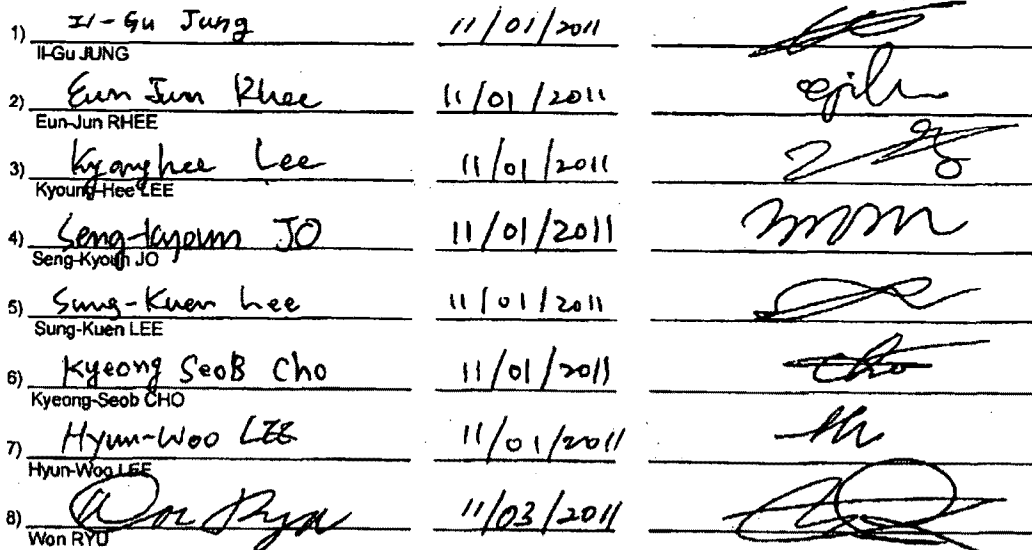 1) Il-Gu Jung 11/01/2011
Il-Gu JUNG
2) Eun Jun Rhee 11/01/2011
Eun-Jun RHEE
3) Kyounghee Lee 11/01/2011
Kyoung-Hee LEE
4) Seng-kyoun JO 11/01/2011
Seng-Kyoun JO
5) Sung-Kuen Lee 11/01/2011
Sung-Kuen LEE
6) Kyeong SeoB Cho 11/01/2011 Cho
Kyeong-Seob CHO
7) Hyun-Woo LEE 11/01/2011
Hyun-Woo LEE
8) Won Ryu 11/03/2011
Won RYU